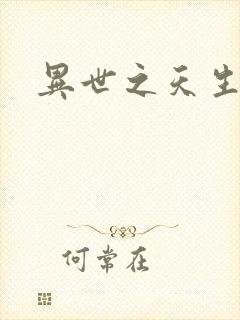 異世之天生
何常在